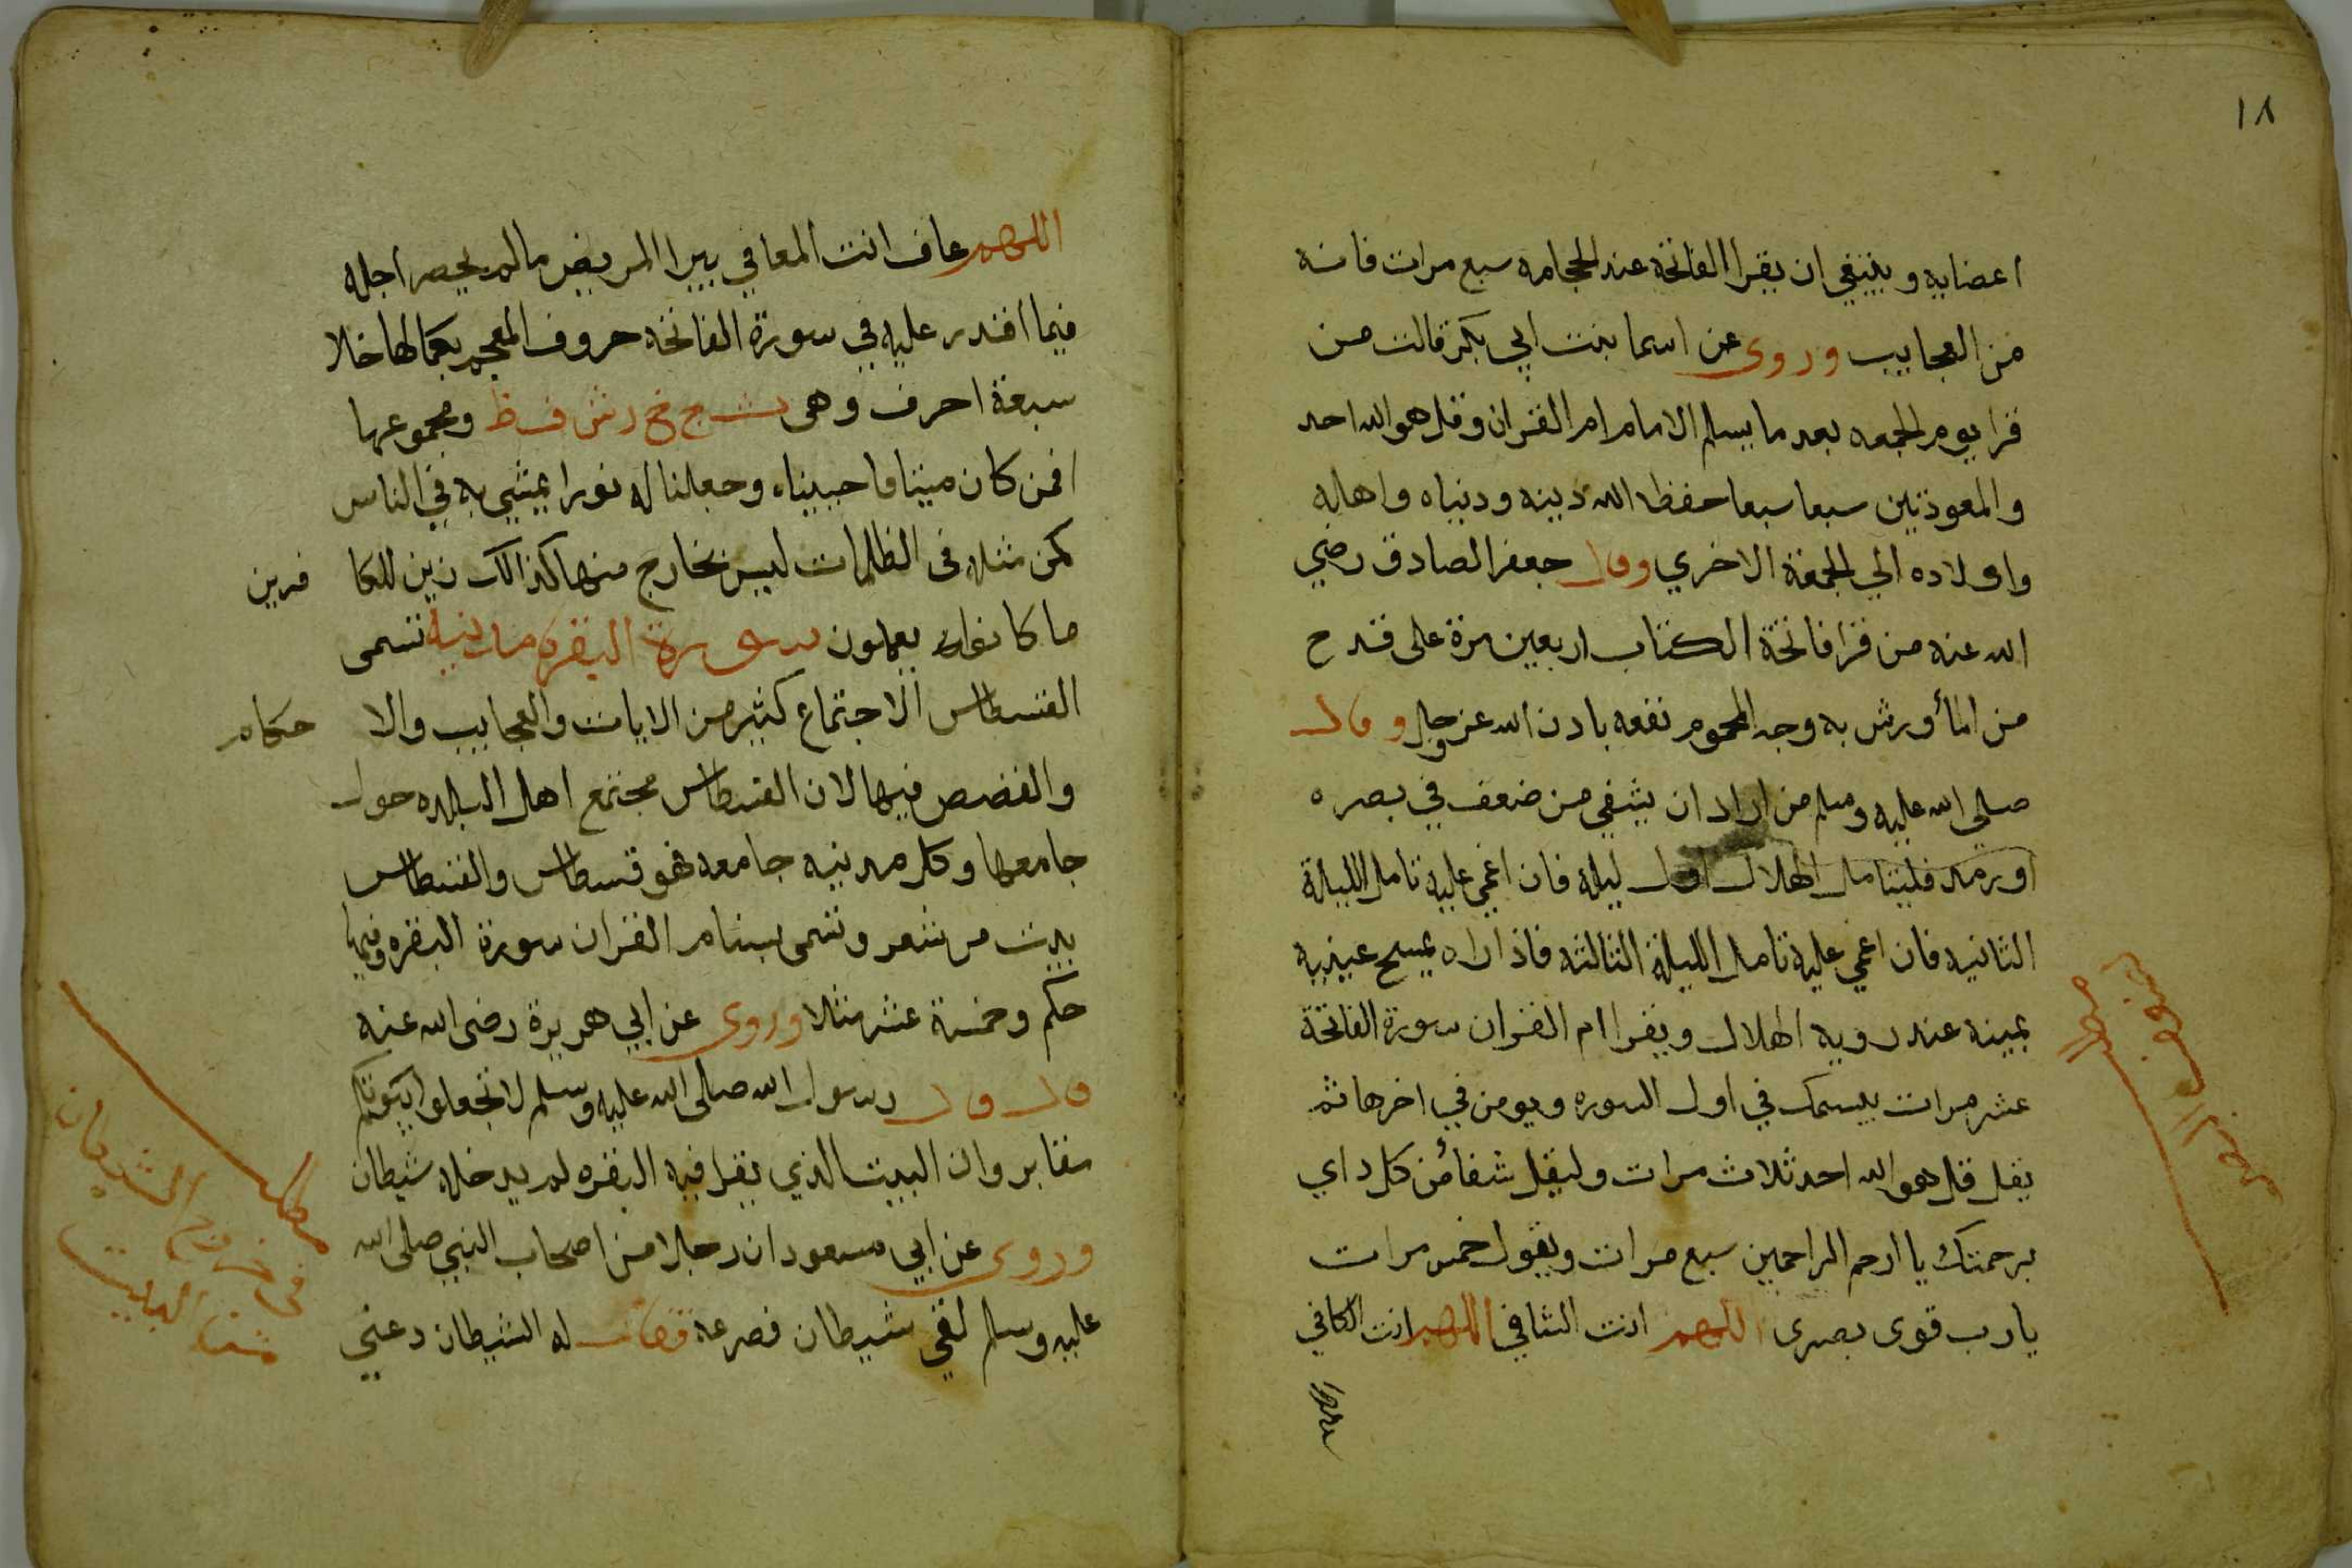 ١٨
اعضايه وينبغي ان يقرا الفاتحة عند الحجامه سبع مرات فانه
من العجايب وروى عن اسما بنت ابي بكر قالت من
قرا يوم الجمعه بعد ما يسلم الامام ام القران وقل هو الله احد
والمعوذتين سبعا سبعا حفظ الله دينه ودنياه واهله
واولاده الي الجمعة الاخري وقال جعفر الصادق رضي
الله عنه من قرا فاتحة الكتاب اربعين مرة على قدح
من الماء ورش به وجه المحموم نفعه باذن الله عز وجل وقال
صلي الله عليه وسلم من اراد ان يشفي من ضعف في بصره
او رمد فليتامل الهلال اول ليلة فان اغمي عليه تامل الليلة
الثانيه فان اغمي عليه تامل الليلة الثالثه فاذا راه يمسح عينيه
بيمينه عند رويه الهلال ويقرا ام القران سورة الفاتحة
عشر مرات يبسمك في اول السوره ويومن في اخرها ثم
يقل قل هو الله احد ثلاث مرات وليقل شفا من كل داي
برحمتك يا ارحم الراحمين سبع مرات ويقول خمس مرات
يا رب قوى بصرى اللهم انت الشافي اللهم انت الكافي
اللهم
اللهم عاف انت المعافي يبرا المريض مالم يحضر اجله
فيما اقتدر عليه في سورة الفاتحه حروف المعجم بكمالها خلا
سبعة احرف وهى ث ج خ ز ش ف ظ ومجموعها
افمن كان ميتا فاحييناه وجعلنا له نورا يمشي به في الناس
كمن مثله فى الظلمات ليس بخارج منها كذالك زين للكا فرين
ما كانوا يعملون سورة البقره مدنيه تسمى
القسطاس الاجتماع كثير من الايات والعجايب والا حكام
والقصص فيها لان القسطاس مجتمع اهل البلده حول
جامعها وكل مدينه جامعه فهو قسطاس والقسطاس
بيت من شعر وتسمى سنام القران سورة البقره وفيها
حكم وخمسة عشر مثلا وروى عن ابي هريرة رضى الله عنه
قال قال رسول الله صلى الله عليه وسلم لا تجعلوا بيوتكم
مقابر وان البيت الذي يقرا فيه البقره لم يدخله شيطان
وروى عن ابي مسعود ان رجلا من اصحاب النبي صلى الله
عليه وسلم لقي شيطان فصرعه فقال له الشيطان دعني